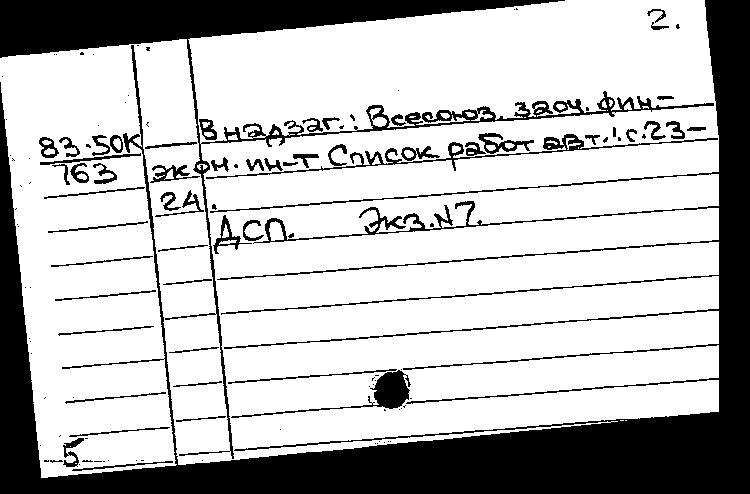 2.
83.50К
163
В надзаг.: Всесоюз. заоч. фин.-
экон. ин-т Список работ авт.: с.23-
24.
ДСП. Экз.N7.
5